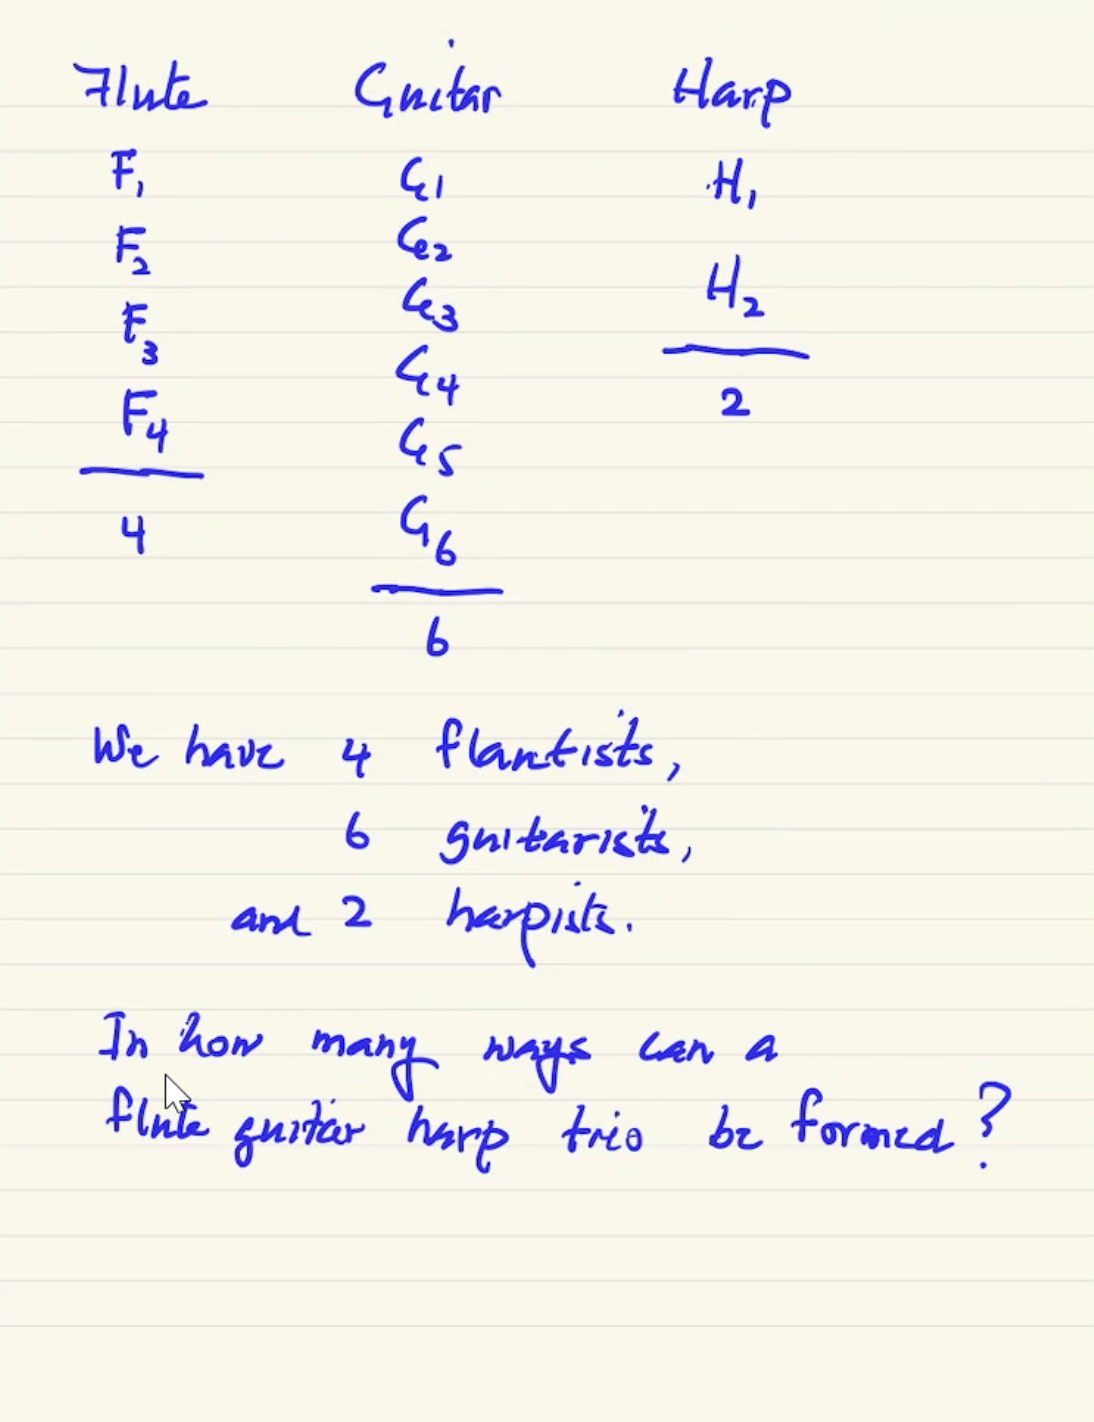 Flute Guitar Harp
F1 G1 H1
F2 G2 H2
F3 G3
F4 G4 2
4 G5
G6
6
We have 4 flautists,
6 guitarists,
and 2 harpists.
In how many ways can a
flute guitar harp trio be formed?